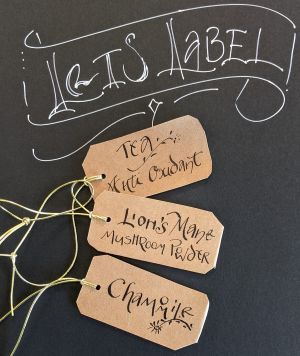 LETS LABEL
TEA
Anti Oxidant
Lion's Mane
MUSHROOM POWDER
Chamomile